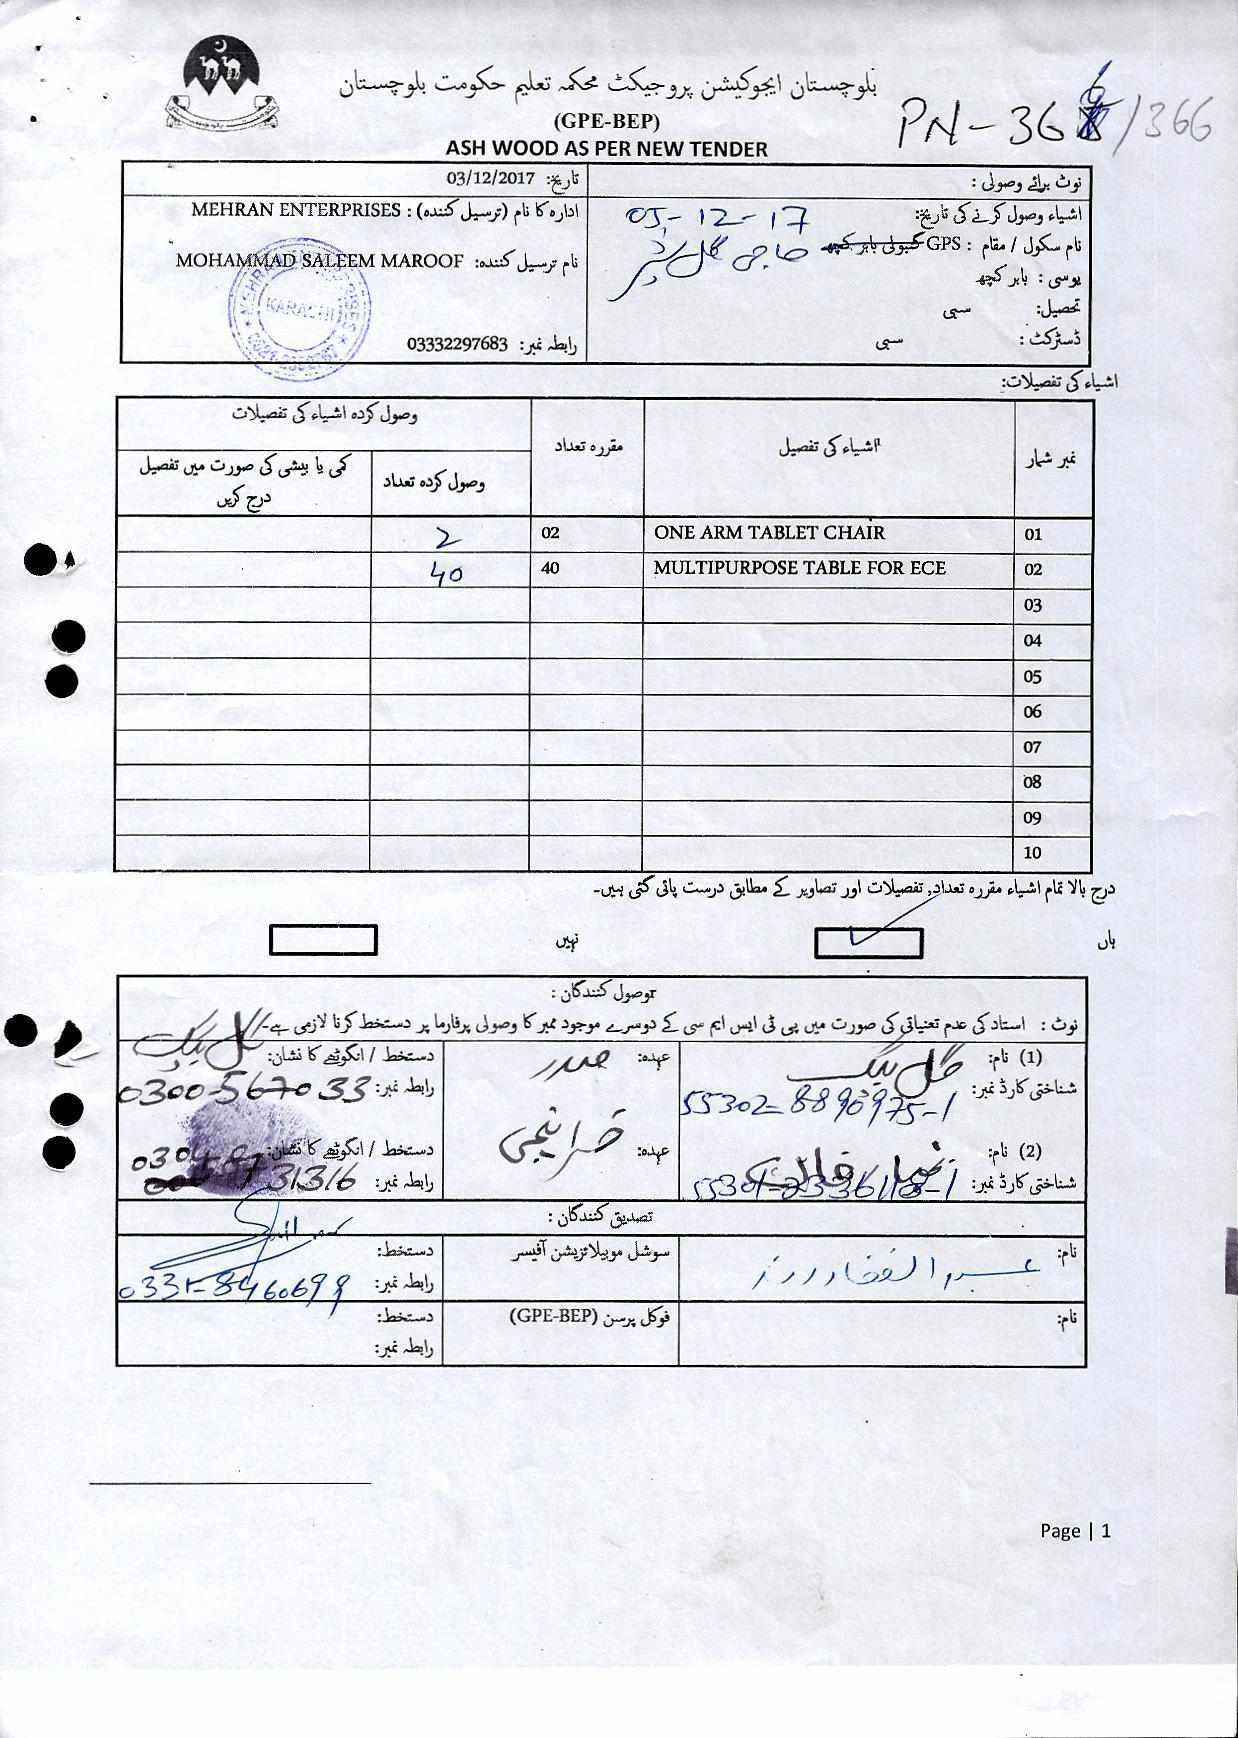 بلوچستان ایجوکیشن پروجیکٹ محکمہ تعلیم حکومت بلوچستان
(GPE-BEP)
ASH WOOD AS PER NEW TENDER
PN-366/366
نوٹ برائے وصولی :
تاریخ: 03/12/2017
اشیاء وصول کرنے کی تاریخ: 05-12-17
ادارہ کا نام (ترسیل کنندہ) : MEHRAN ENTERPRISES
نام سکول / مقام : GPS حاجی گل
نام ترسیل کنندہ: MOHAMMAD SALEEM MAROOF
یوسی : بابر کچھ
تحصیل: سبی
ڈسٹرکٹ : سبی
رابطہ نمبر: 03332297683
KARACHI
اشیاء کی تفصیلات:
نمبر شمار
اشیاء کی تفصیل
مقررہ تعداد
وصول کردہ اشیاء کی تفصیلات
وصول کردہ تعداد
کمی یا بیشی کی صورت میں تفصیل درج کریں
01 ONE ARM TABLET CHAIR 02 2
02 MULTIPURPOSE TABLE FOR ECE 40 40
03
04
05
06
07
08
09
10
درج بالا تمام اشیاء مقررہ تعداد, تفصیلات اور تصاویر کے مطابق درست پائی گئی ہیں۔
ہاں
نہیں
توصول کنندگان :
نوٹ : استاد کی عدم تعنیاتی کی صورت میں پی ٹی ایس ایم سی کے دوسرے موجود ممبر کا وصولی پرفارما پر دستخط کرنا لازمی ہے۔
(1) نام: گل بیگ
عہدہ: صدر
دستخط / انگوٹھے کا نشان: گل بیگ
شناختی کارڈ نمبر: 55302-8890975-1
رابطہ نمبر: 0300-567033
(2) نام:
عہدہ: خزانچی
دستخط / انگوٹھے کا نشان:
شناختی کارڈ نمبر:
رابطہ نمبر:
تصدیق کنندگان :
نام:
سوشل موبیلائزیشن آفیسر
دستخط:
رابطہ نمبر: 0331-8460699
نام:
فوکل پرسن (GPE-BEP)
دستخط:
رابطہ نمبر:
Page | 1